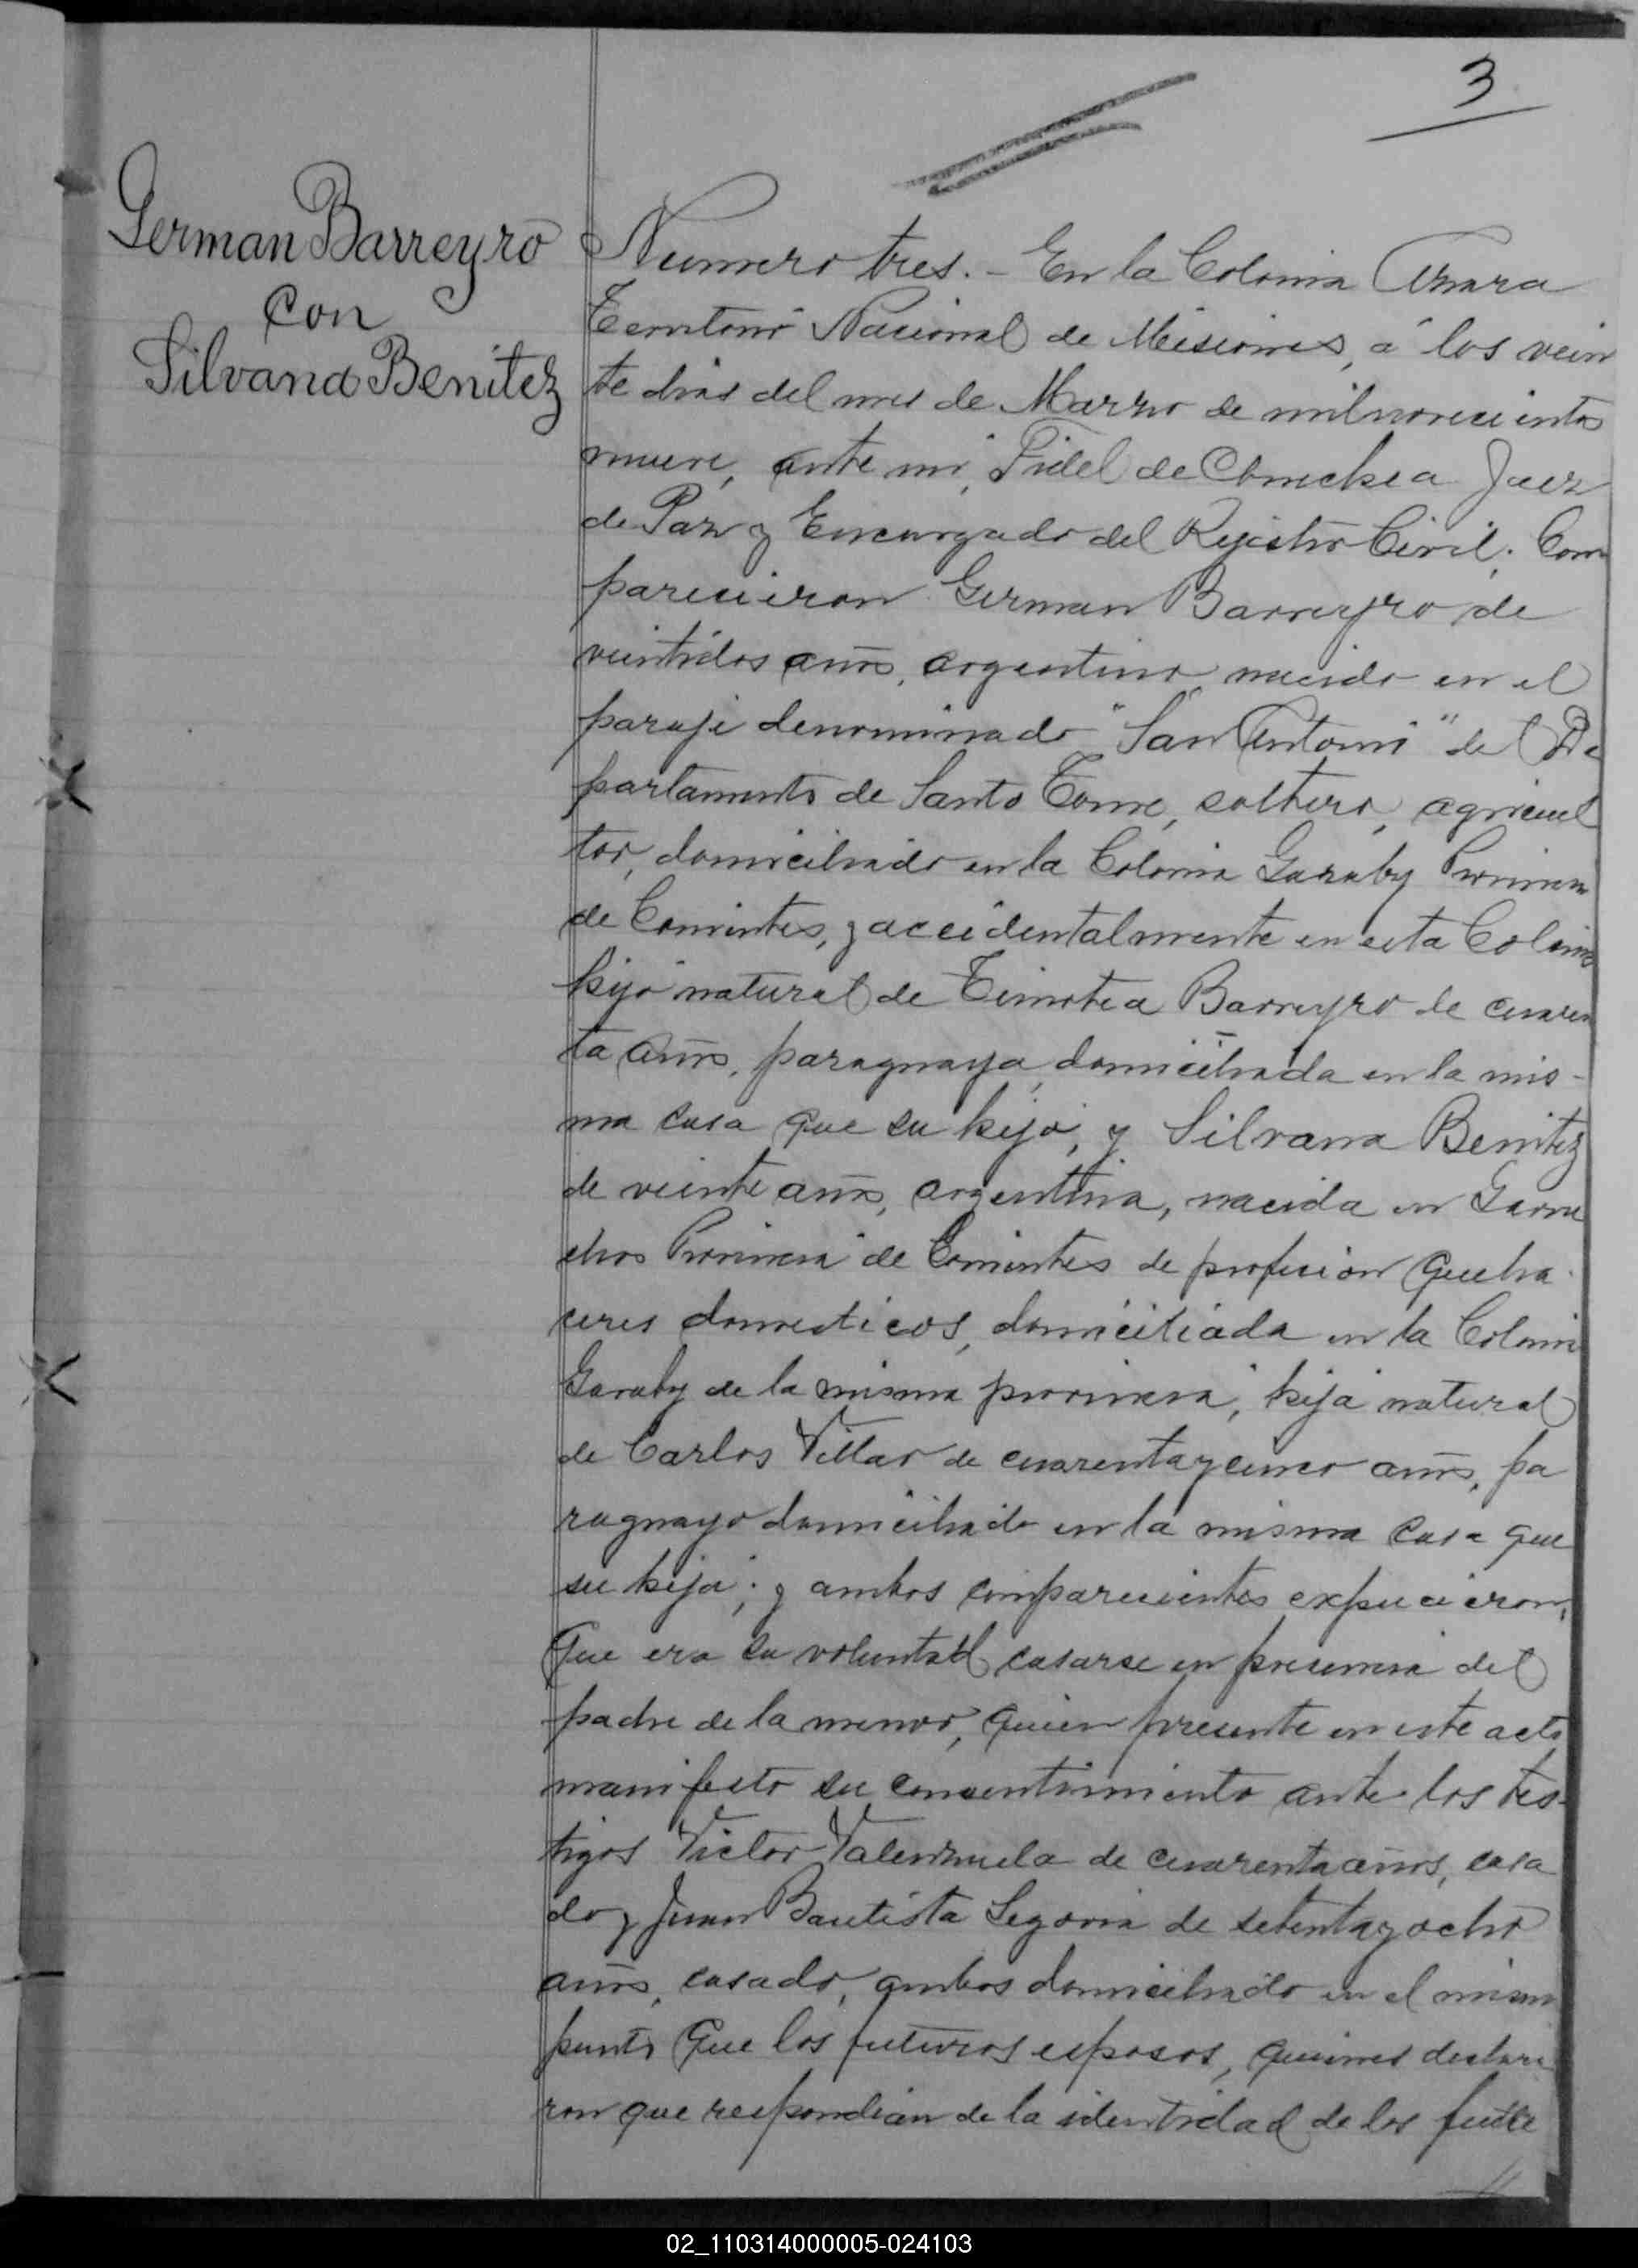 3
German Barreyro
con
Silvana Benitez
Numero tres. - En la Colonia Azara
Territorio Nacional de Misiones, á los vein
te dias del mes de Marzo de milnovecientos
nueve, ante mi, Fidel de Juez
de Paz y Encargado del Registro Civil; Com
parecieron German Barreyro de
veintidos años, argentino nacido en el
paraje denominado "San Antonio" del De
partamento de Santo Tome, soltero, agricul
tor, domiciliado en la Colonia Garaby Provincia
de Corrientes, y accidentalmente en esta Colonia
hijo natural de Timotea Barreyro de cuaren
ta años, paraguaya, domiciliada en la mis-
ma casa que su hijo, y Silvana Benitez
de veinte años, argentina, nacida en Garru
chos Provincia de Corrientes de profesion queha
ceres domesticos, domiciliada en la Colonia
Garaby de la misma provincia, hija natural
de Carlos Villar de cuarentaycinco años, pa
raguayo domiciliado en la misma casa que
su hija; y ambos comparecientes expucieron,
Que era su voluntad casarse en presencia del
padre de la menor, quien presente en este acto
manifesto su consentimiento ante los tes-
tigos Victor Valenzuela de cuarenta años, casa
do y Juan Bautista Segovia de setentayocho
años, casado, ambos domiciliado en el mismo
punto que los futuros esposos, quienes declara
ron que respondian de la identidad de los futu
02_110314000005-024103